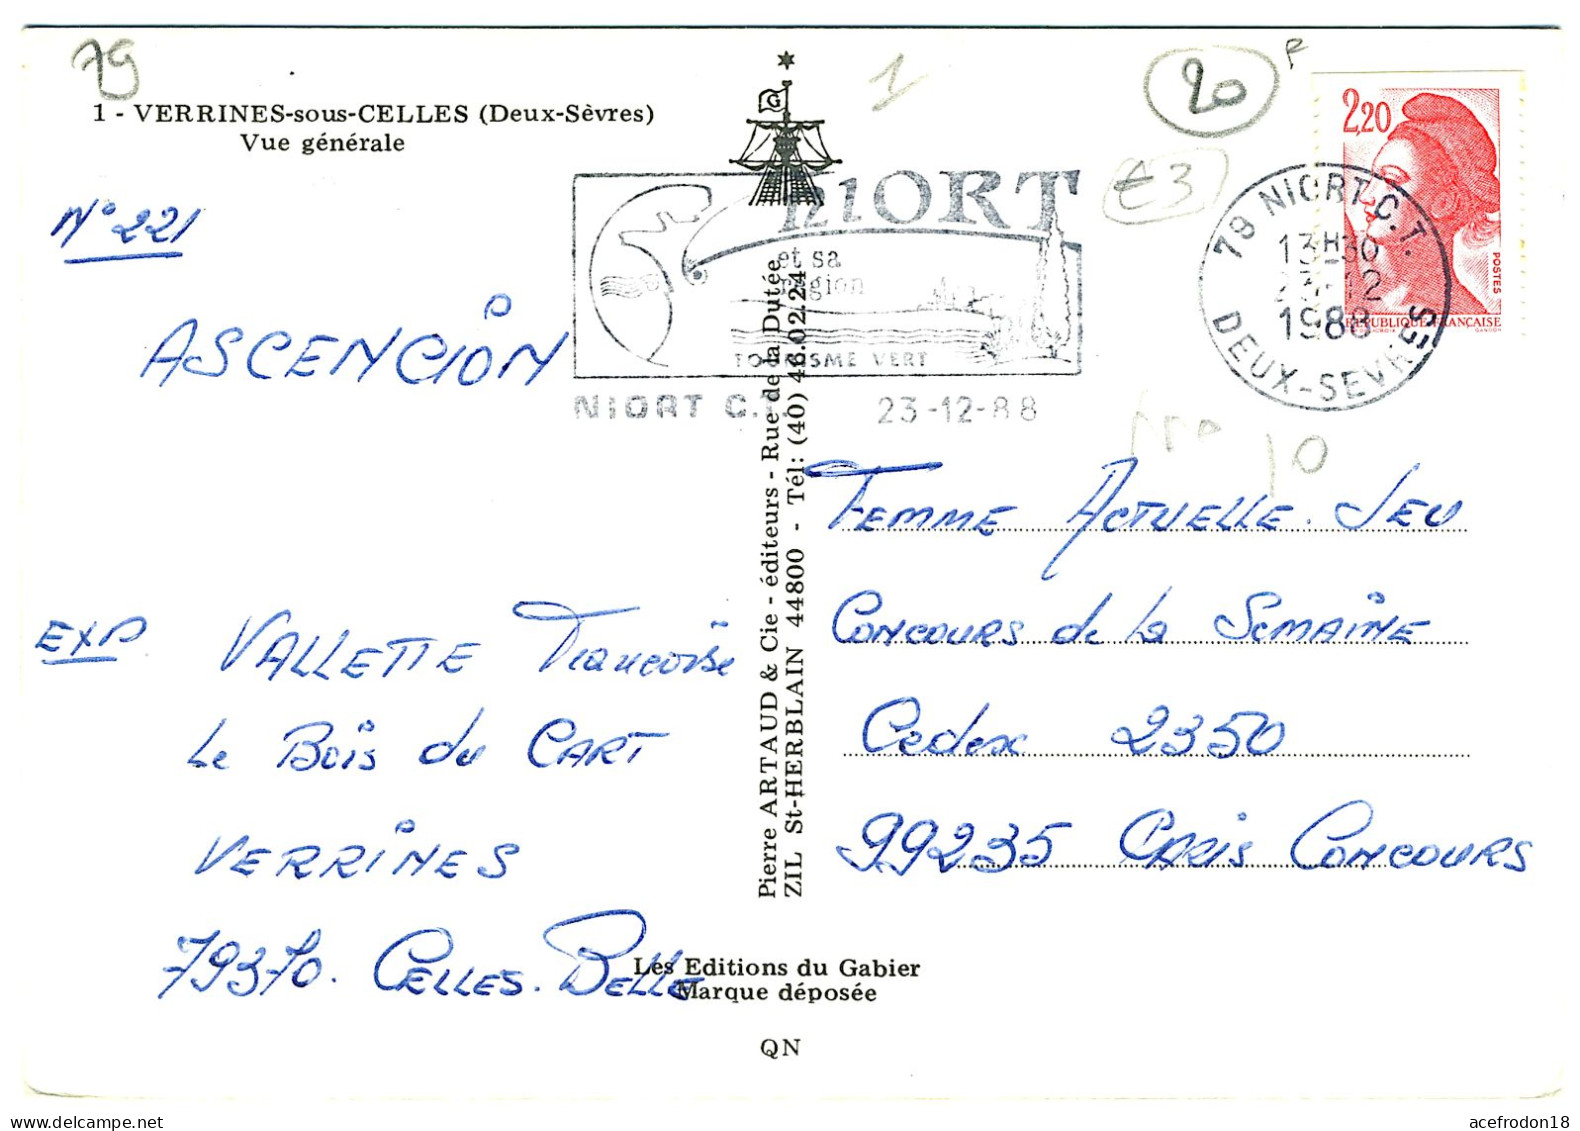 79
1
20 F
€3
1 - VERRINES-sous-CELLES (Deux-Sèvres)
Vue générale
G
2,20
POSTES
REPUBLIQUE FRANÇAISE
79 NIORT C.T.
13H30
23-12
1988
DEUX-SEVRES
NIORT
et sa
région
TOURISME VERT
NIORT C.T. 23-12-88
N° 221
ASCENCION
10
EXP VALLETTE Francoise
Le Bois du CART
VERRINES
79370. CELLES. BELLE
Pierre ARTAUD & Cie - éditeurs - Rue de la Dutée
ZIL St-HERBLAIN 44800 - Tél: (40) 46.02.24
FEMME ACTUELLE. JEU
CONCOURS de la SEMAINE
Cedex 2350
99235 PARIS CONCOURS
Les Editions du Gabier
Marque déposée
QN
acefrodon18